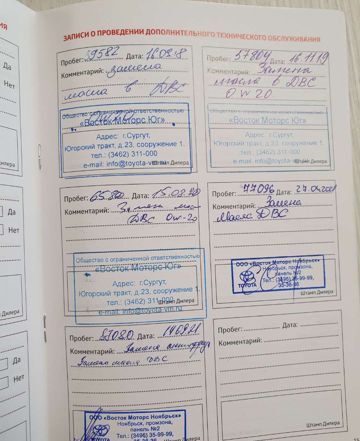 ЗАПИСИ О ПРОВЕДЕНИИ ДОПОЛНИТЕЛЬНОГО ТЕХНИЧЕСКОГО ОБСЛУЖИВАНИЯ
Да
Нет
Пробег: 9582 Дата:
Комментарий: замена
масла в ДВС
ответственностью
«Восток Моторс Юг»
Адрес: г.Сургут,
Югорский тракт, д.23, сооружение 1.
тел.: (3462) 311-000
e-mail: info@toyota-vm.ru
Штамп Дилера
Пробег: 57804 Дата: 16.11.19
Комментарий: Замена
масла в ДВС
0w20
Общество с ограниченной ответственностью
«Восток Моторс Юг»
Адрес: г.Сургут,
Югорский тракт, д.23, сооружение 1.
тел.: (3462) 311-000
e-mail: info@toyota-vm.ru
Штамп Дилера
Да
Нет
Дилера
Пробег: Дата: 15.08.20
Комментарий: Замен мас
ДВС 0w-20
Общество с ограниченной ответственностью
«Восток Моторс Юг»
Адрес: г.Сургут,
Югорский тракт, д.23, сооружение 1.
тел.: (3462) 311-000
e-mail: info@toyota-vm.ru
Штамп Дилера
Пробег: 77096 Дата:
Комментарий: Замена
масла ДВС
ООО «Восток Моторс Ноябрьск»
Ноябрьск, промзона,
панель №2
Тел.: (3496) 35-99-99,
TOYOTA
Штамп Дилера
Да
Нет
Пробег: Дата:
Комментарий: Замена
Замена масла ДВС
ООО «Восток Моторс Ноябрьск»
Ноябрьск, промзона,
панель №2
Тел.: (3496) 35-99-99,
TOYOTA
Пробег: Дата:
Комментарий:
Штамп Дилера